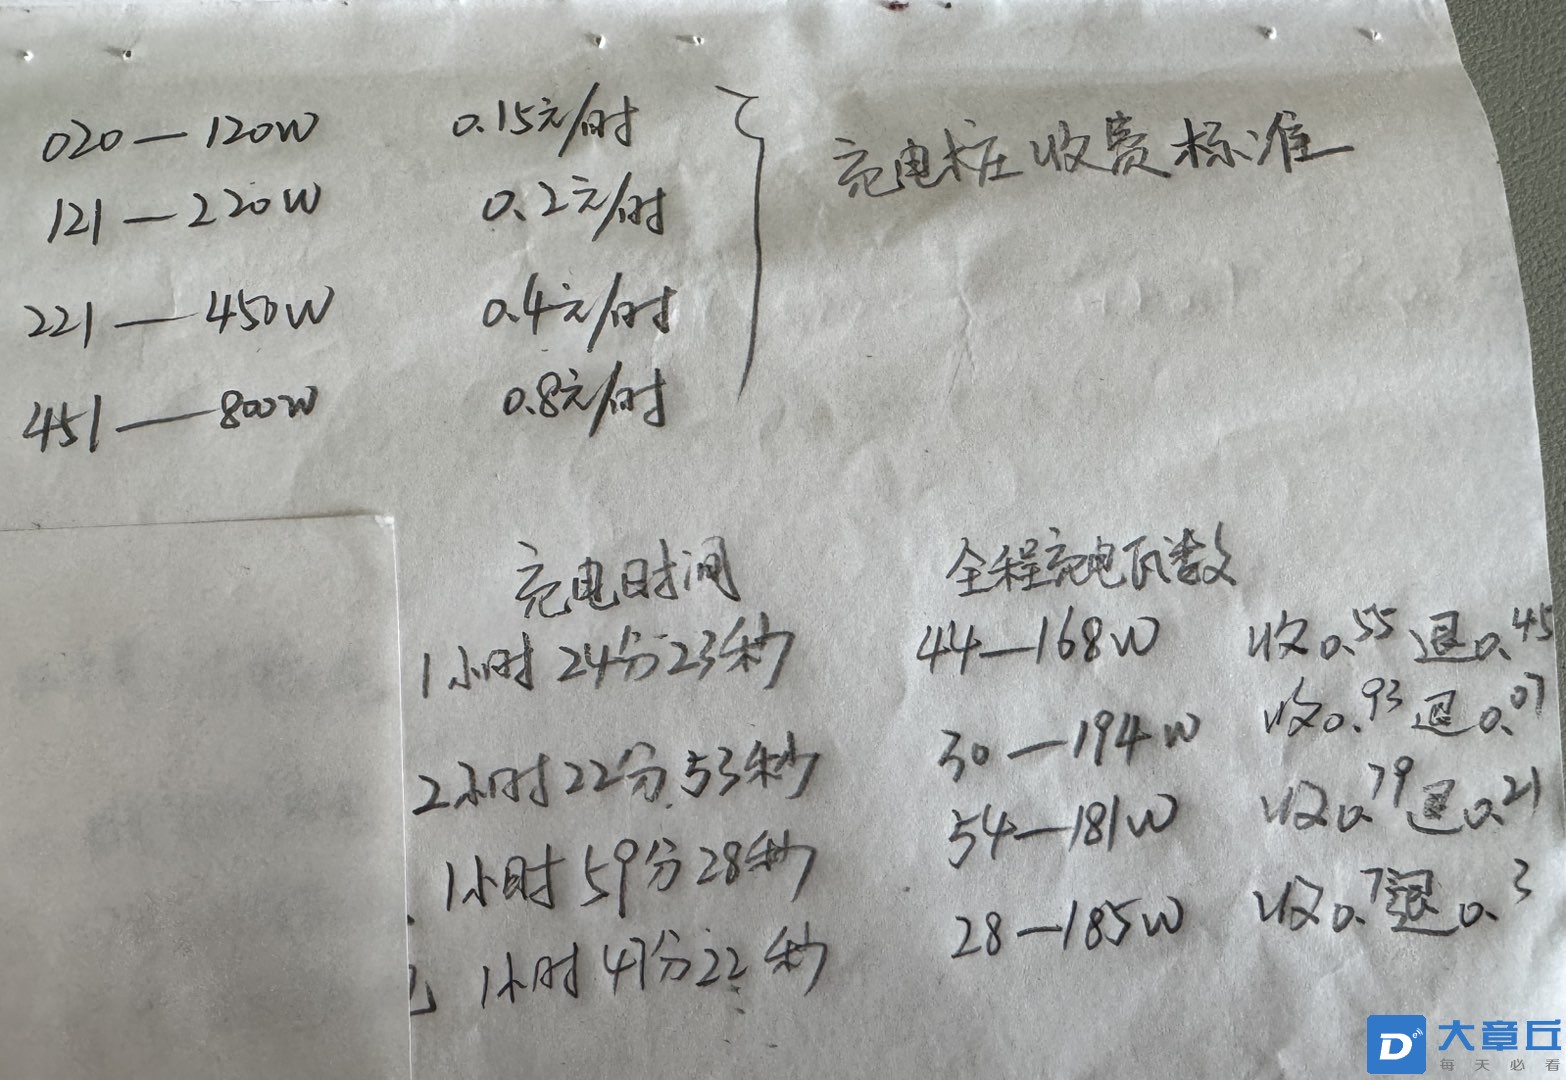 020—120W 0.15元/时
121—220W 0.2元/时
221—450W 0.4元/时
451—800W 0.8元/时
充电桩收费标准
充电时间 全程充电瓦数
1小时24分23秒 44—168W 收0.55 退0.45
2小时22分53秒 30—194W 收0.93 退0.07
1小时59分28秒 54—181W 收0.79 退0.21
1小时47分22秒 28—185W 收0.7 退0.3
大章丘
每天必看